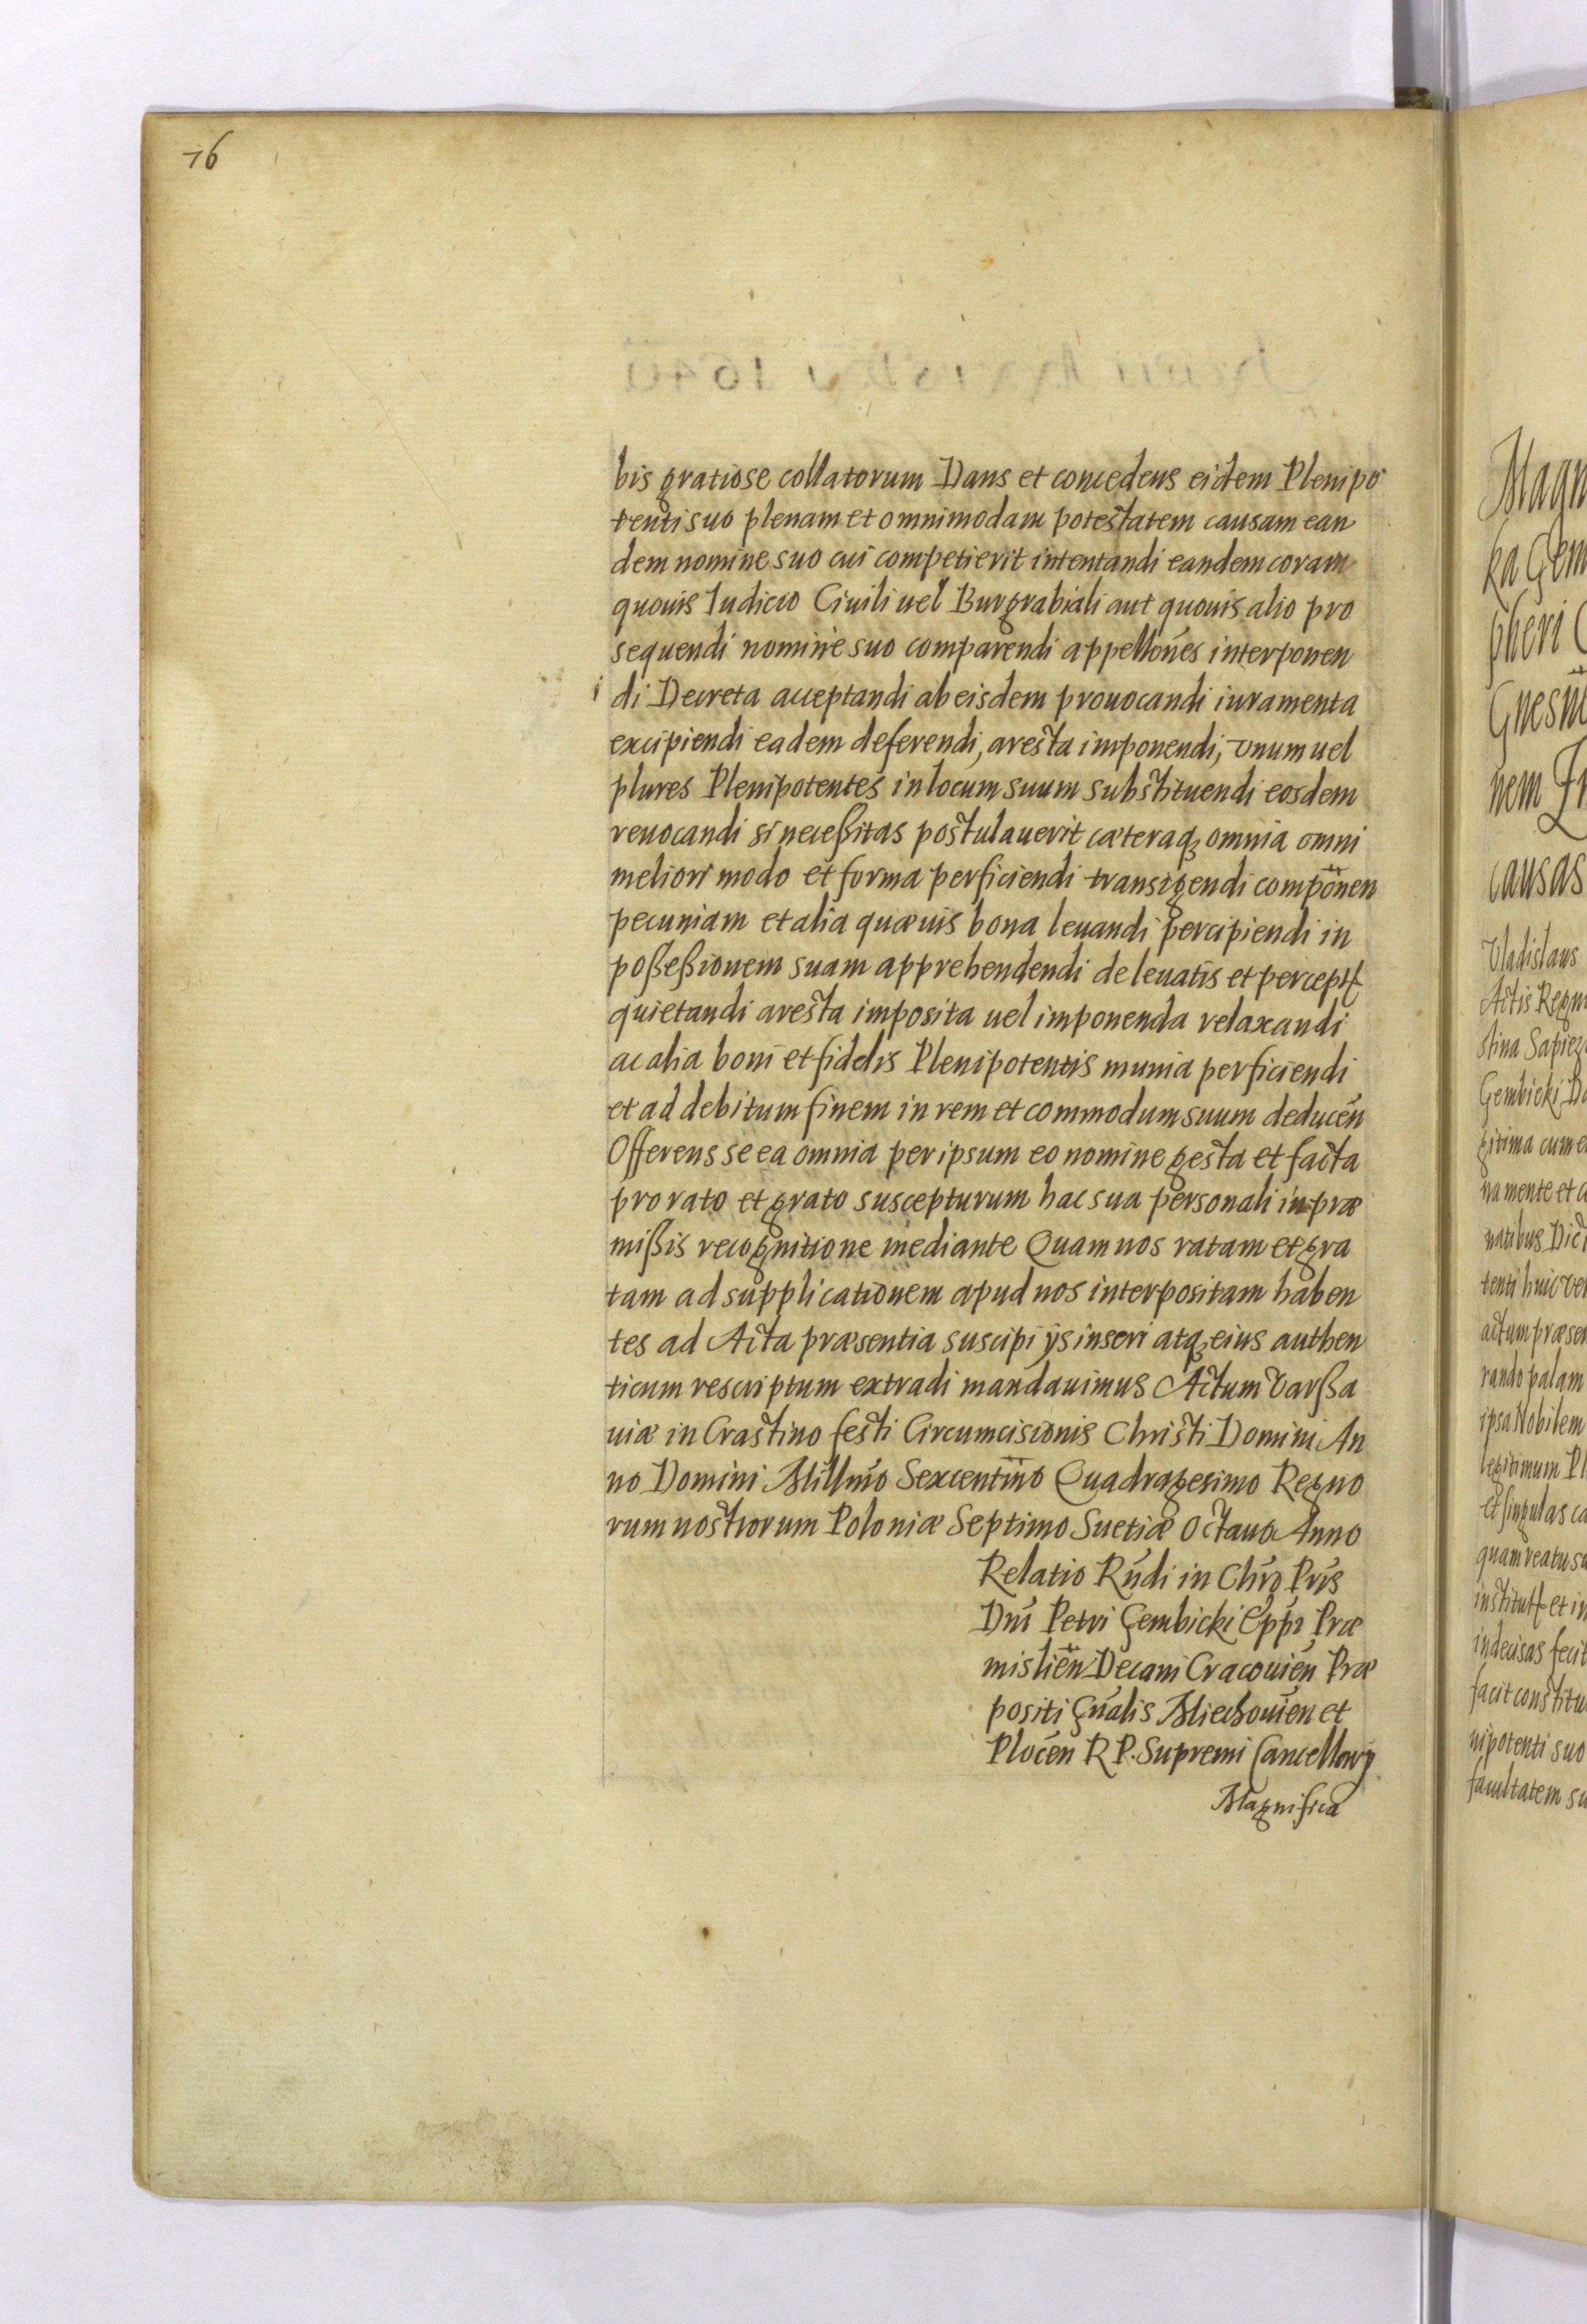 76
bis gratiose collatorum Dans et concedens eidem Plenipo
tenti suo plenam et omnimodam potestatem causam ean
dem nomine suo cui competierit intentandi eandem coram
quouis Iudicio Ciuili uel Burgrabiali aut quouis alio pro
sequendi nomine suo comparendi appellońes interponen
di Decreta acceptandi ab eisdem prouocandi iuramenta
excipiendi eadem deferendi, aresta imponendi, vnum uel
plures Plenipotentes in locum suum substituendi eosdem
reuocandi si neceßitas postulauerit cæteraq; omnia omni
meliori modo et forma perficiendi transigendi componen
pecuniam et alia quæuis bona leuandi percipiendi in
poßeßionem suam apprehendendi de leuatis et percept
quietandi aresta imposita uel imponenda relaxandi
ac alia boni et fidelis Plenipotentis munia perficiendi
et ad debitum finem in rem et commodum suum deduceń
Offerens se ea omnia per ipsum eo nomine gesta et facta
pro rato et grato suscepturum hac sua personali in præ
mißis recognitione mediante Quam nos ratam et gra
tam ad supplicationem apud nos interpositam haben
tes ad Acta præsentia suscipi ijs inseri atq; eius authen
ticum rescriptum extradi mandauimus Actum Varßa
uiæ in Crastino festi Circumcisionis Christi Domini An
no Domini Millmo Sexcentmo Quadragesimo Regno
rum nostrorum Poloniæ Septimo Suetiæ Octauo Anno
Relatio Rńdi in Chro Pris
Dni Petri Gembicki Eppi Præ
mislień Decani Cracouień Præ
positi Gńalis Miechouień et
Ploceń R P. Supremi Cancellarij
Magnifica
Magn
ka Gem
pheri
Gnesn
nem
causas
Vladislaus
Actis Regni
stina Sapiez
Gembicki
gitima cum e
na mente et
natibus
tenti huic
actum præsen
rando palam
ipsa Nobilem
legitimum Pl
et singulas ca
quam reatu su
institut et in
indecisas fecit
facit constitu
nipotenti suo
facultatem su